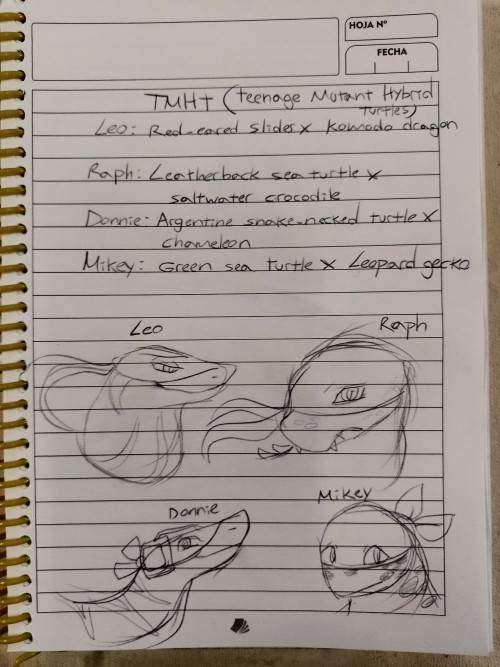 HOJA Nº
FECHA
TMHT (Teenage Mutant Hybrid
Turtles)
Leo: Red-eared slider x Komodo dragon
Raph: Leatherback sea turtle x
saltwater crocodile
Donnie: Argentine snake-necked turtle x
chameleon
Mikey: Green sea turtle x Leopard gecko
Leo
Raph
Donnie
Mikey